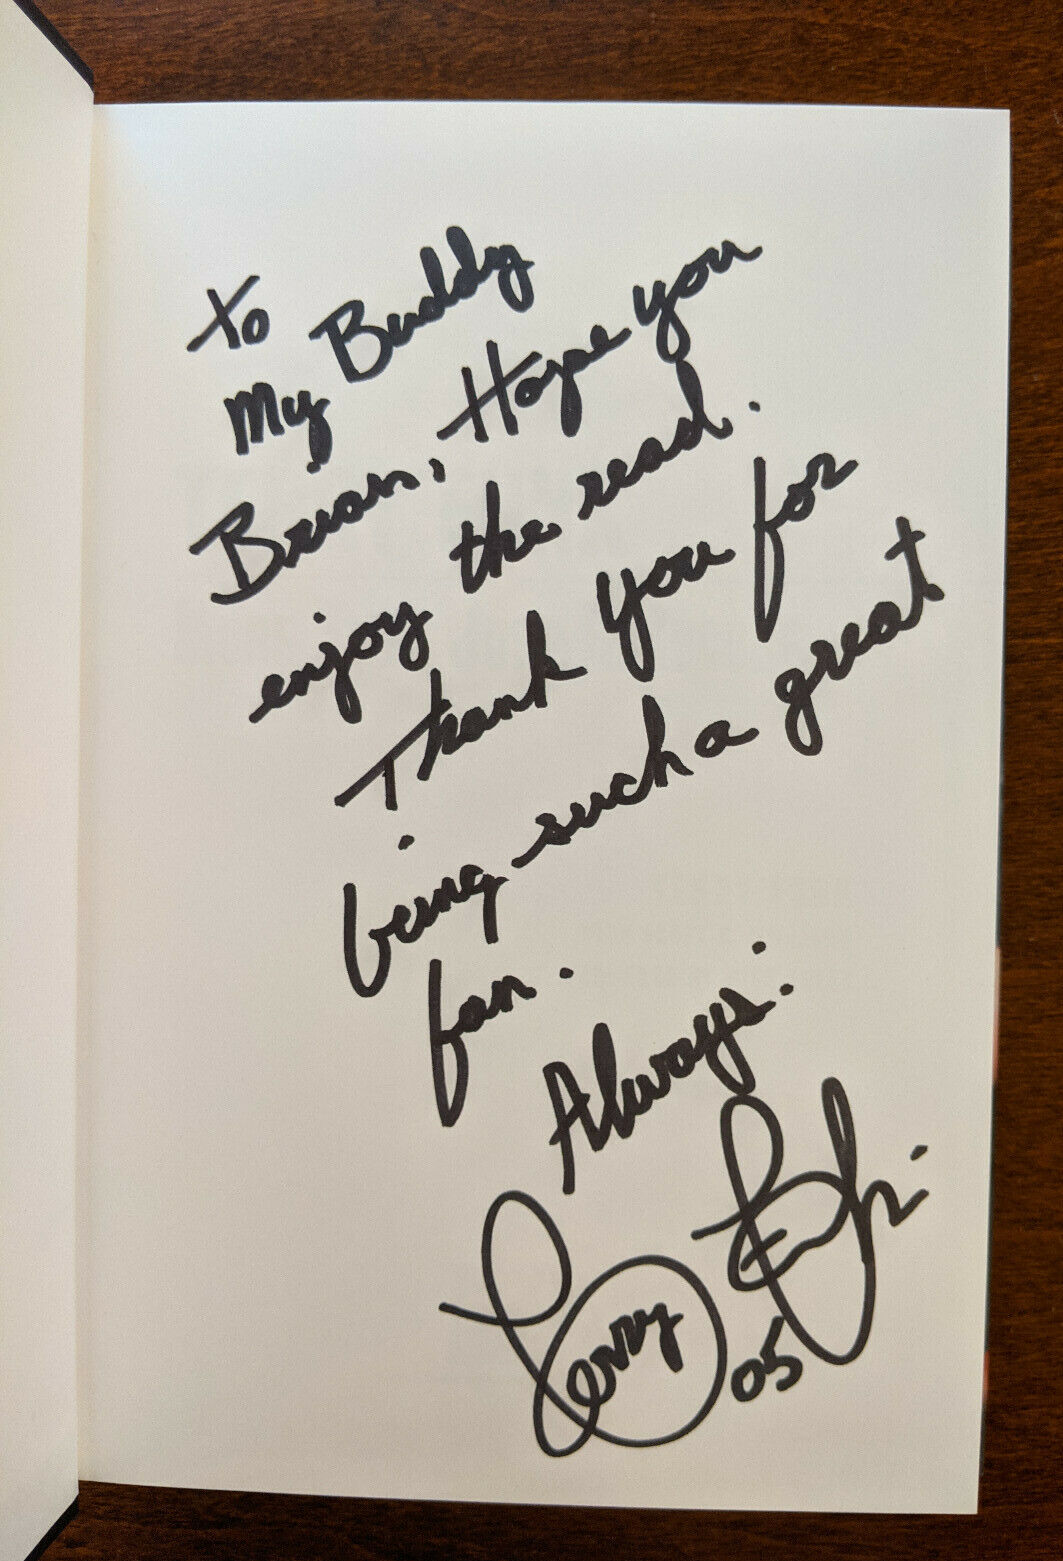 To
My Buddy
Brian, Hope you
enjoy the read.
Thank you for
being such a great
fan.
Always:
05